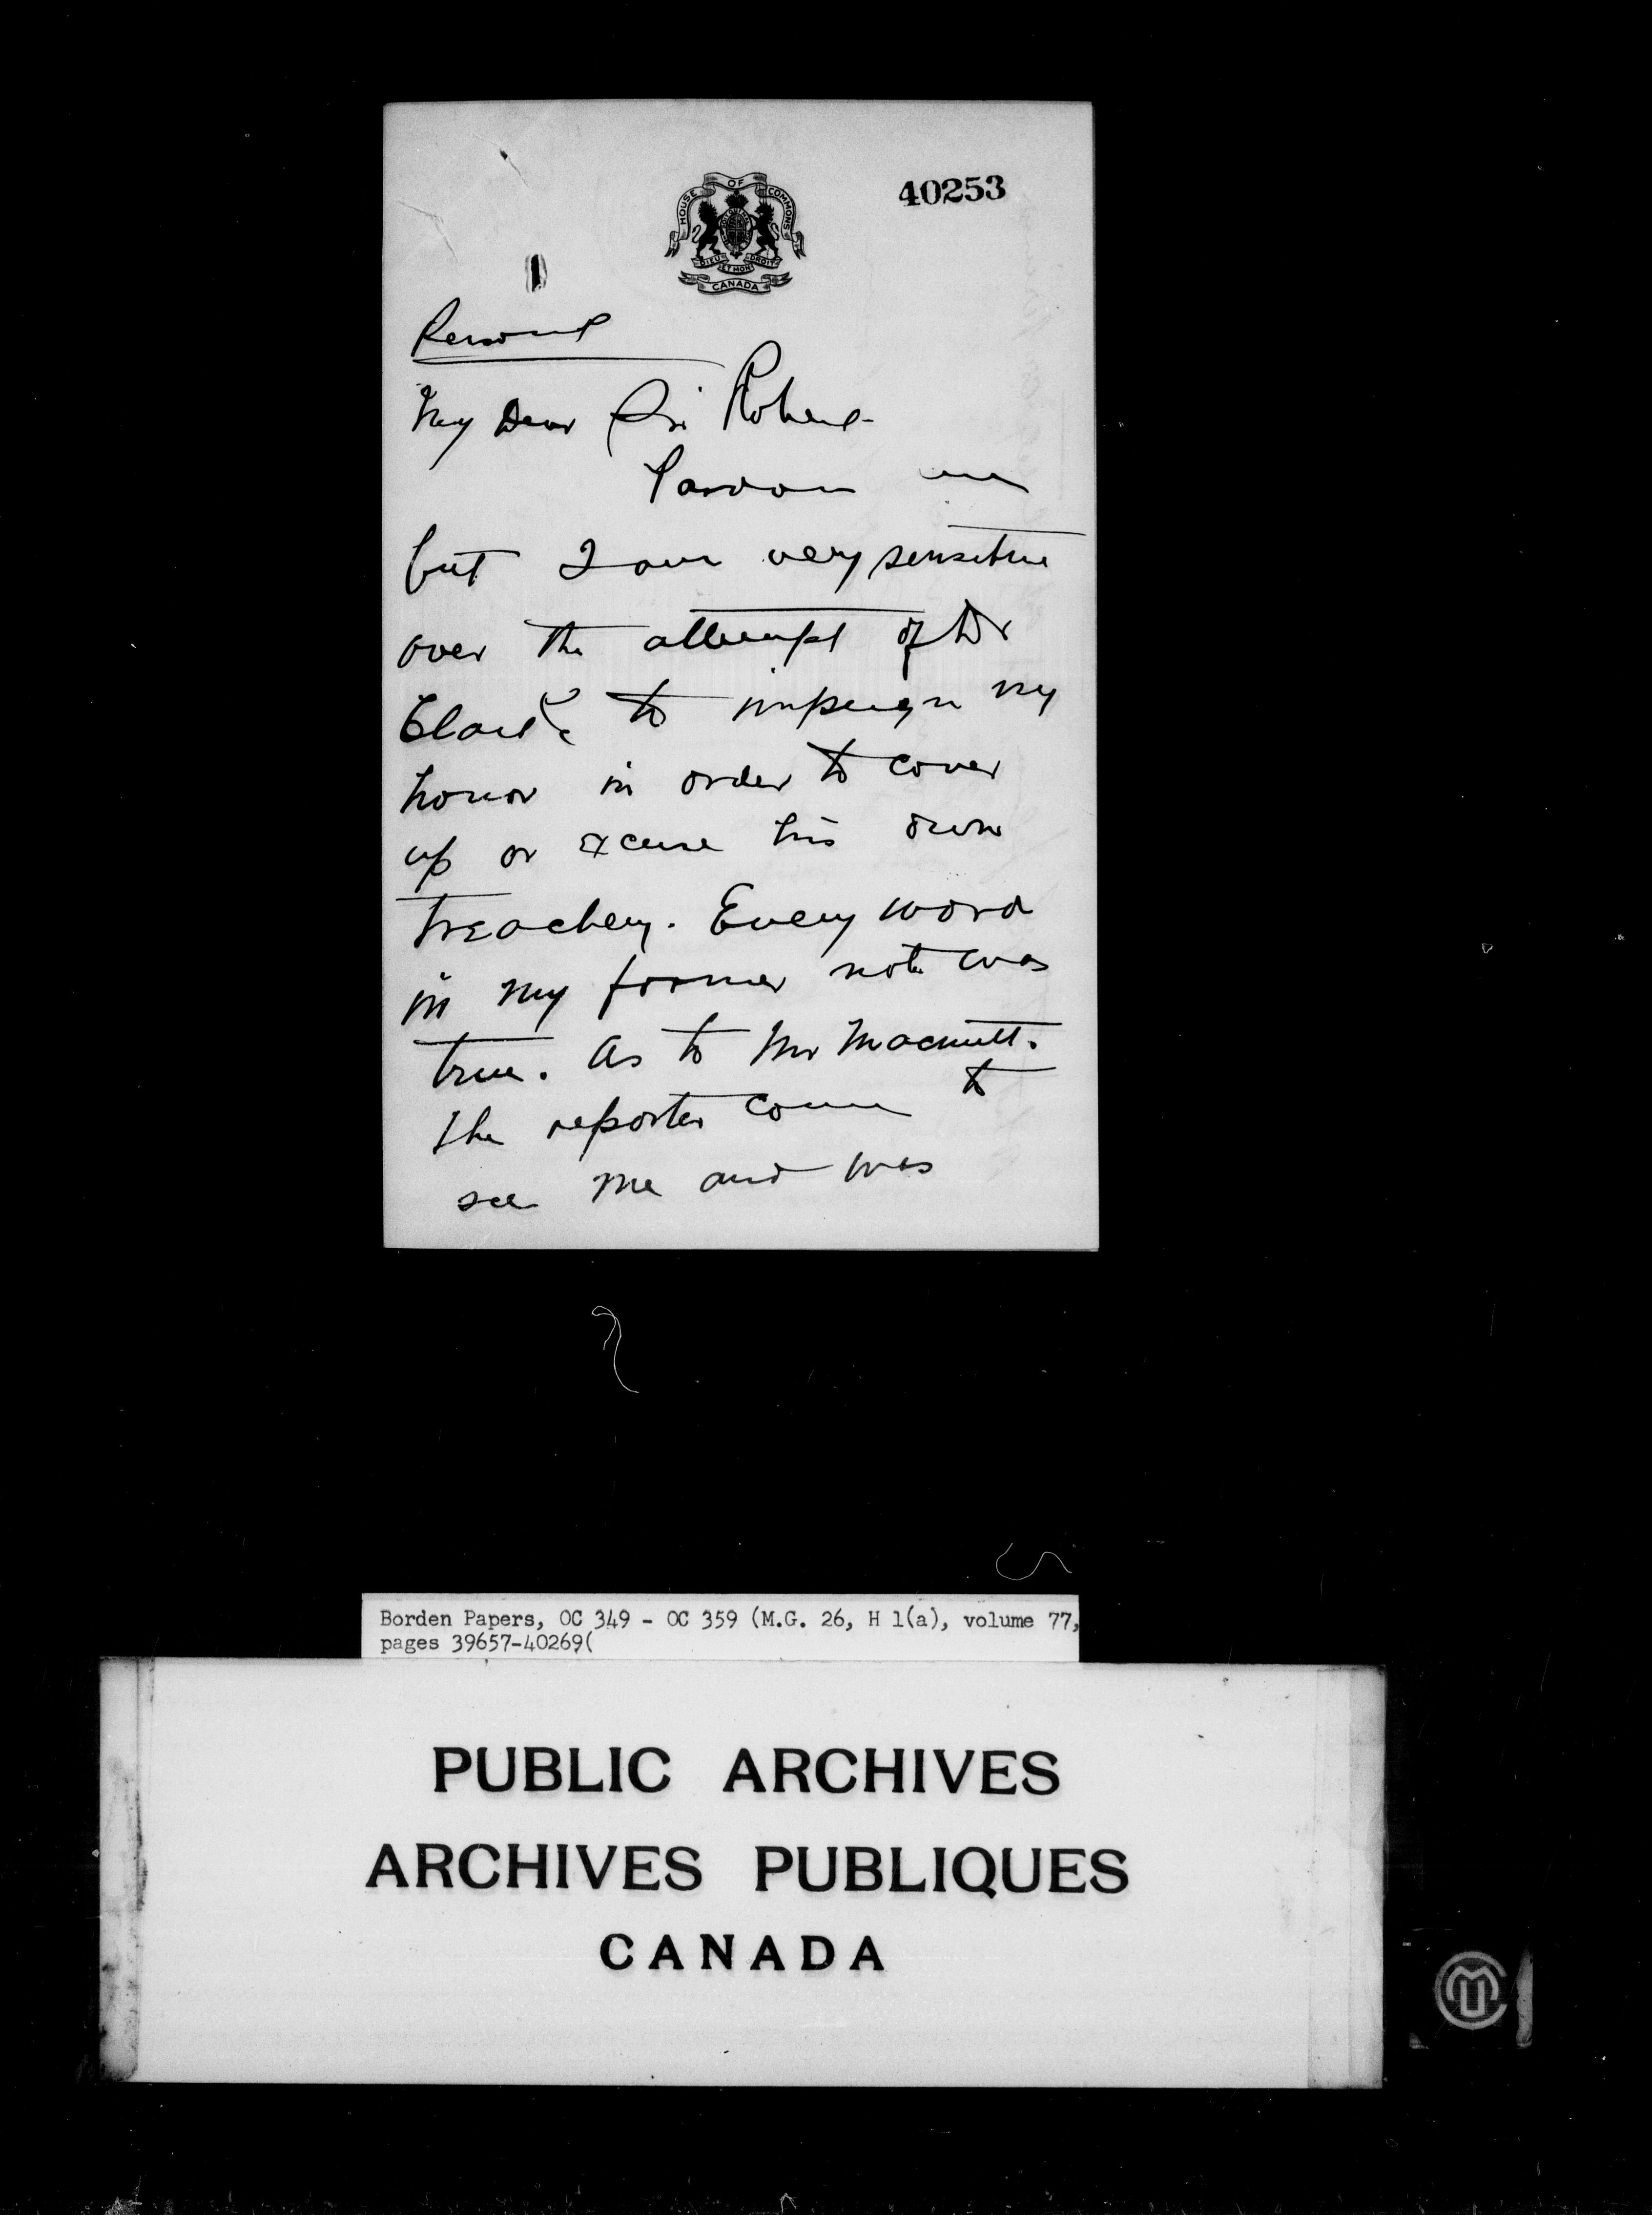 40253
HOUSE OF COMMONS
DIEU ET MON DROIT
CANADA
Personal
My Dear Sir Robert
Pardon me
but I am very sensitive
over the attempt of Dr
Clark to impugn my
honor in order to cover
up or excuse his own
treachery. Every word
in my former note was
true. As to Mr Macnutt.
the reporter came to
see me and was
Borden Papers, OC 349 - OC 359 (M.G. 26, H 1(a), volume 77,
pages 39657-40269(
PUBLIC ARCHIVES
ARCHIVES PUBLIQUES
CANADA